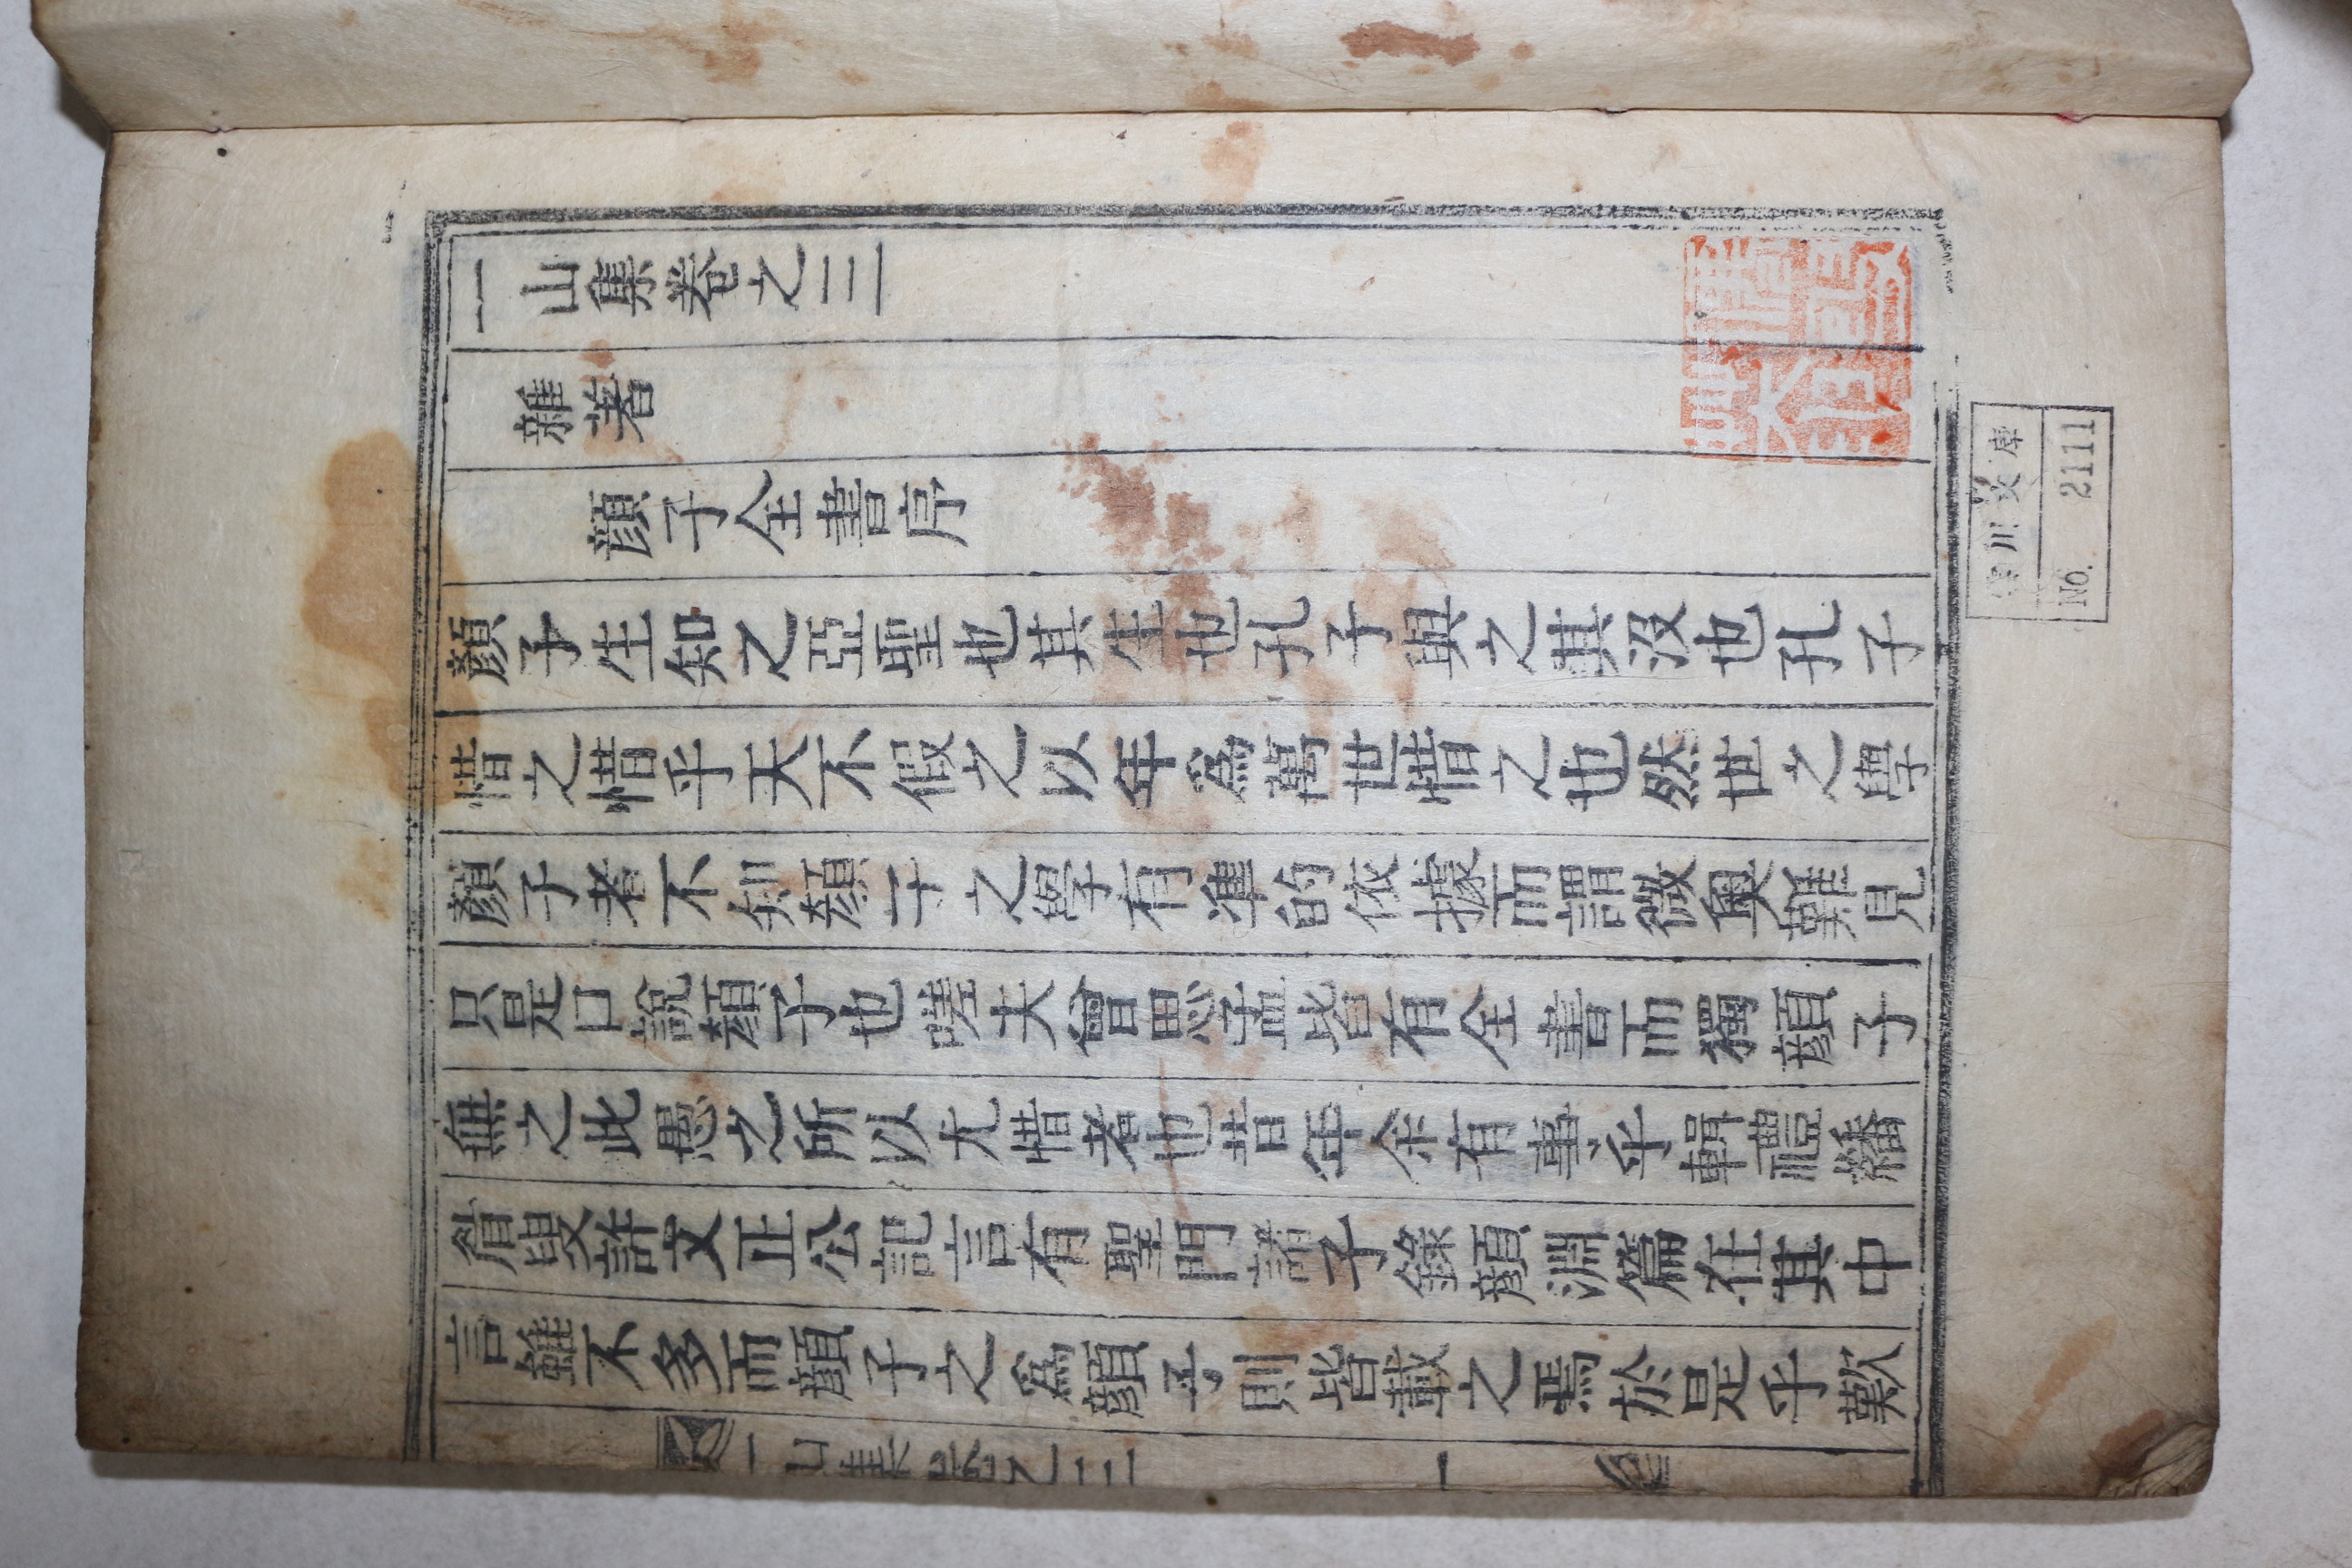 一山集卷之三
雜著
顏子全書序
顏子生知之亞聖也其生也孔子與之其沒也孔子
惜之惜乎天不假之以年爲萬世惜之也然世之學
顏子者不知顏子之學有準的依據而謂微奧難見
只是口說顏子也嗟夫曾思孟皆有全書而獨顏子
無之此愚之所以尤惜者也昔年余有事乎輯禮繙
眉叟許文正公記言有聖門諸子錄顏淵篇在其中
言雖不多而顏子之爲顏子則皆載之焉於是乎歎
一山集卷之三
一
川文庫
No. 21111